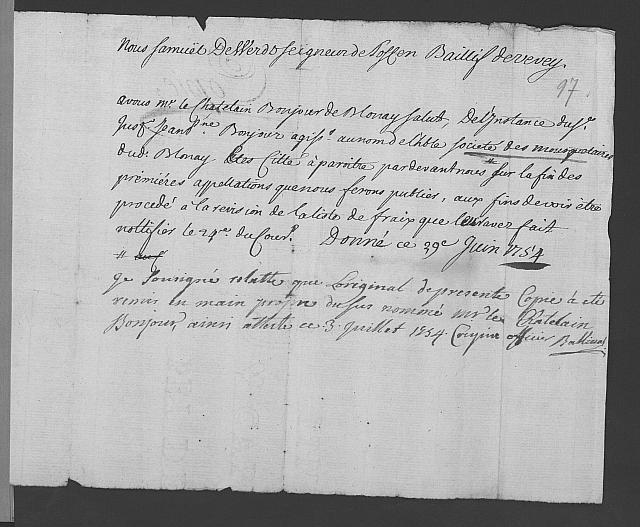 Nous Samuel De Werdt Seigneur de Toffen Baillif de Vevey,
97.
a vous Mr. le Chatelain Bonjour de Blonay Salut, De l'Instance du Sr.
Just. Jean Bonjour agiss. au nom de l'hble Societé des mousquetaires
dud. Blonay êtes Citté à paroitre par devant nous # sur la fin des
premiéres appellations que nous ferons publier, aux fins de voir être
procedé à la revision de la liste de fraix que leur avez fait
nottifier le 24e. du Cour. Donné ce 29e Juin 1754
#
Je Sousigné relatte que Loriginal de presente Copie à eté
remis en main propre du sus nommé Mr le Chatelain
Bonjour, ainsi atteste ce 3 Juillet 1754